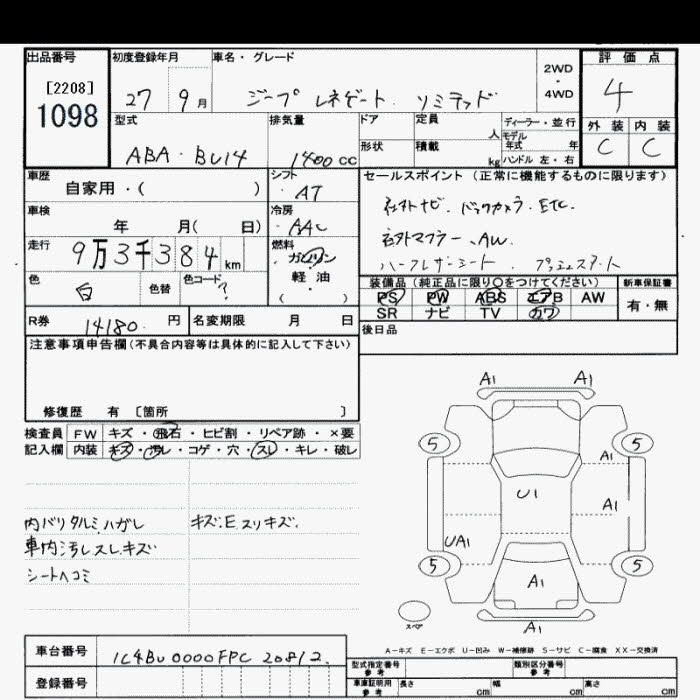 出品番号 初度登録年月 車名・グレード 2WD・4WD 評価点
[2208]
1098
27 9月 ジープ レネゲート リミテッド 4
型式 排気量 ドア 定員 人 ディーラー・並行 外装 内装
ABA・BU14 1400cc 形状 積載 kg モデル年式 年 ハンドル 左・右 C C
車歴 シフト セールスポイント(正常に機能するものに限ります)
自家用・( ) AT
社外ナビ. バックカメラ. ETC.
車検 冷房
年 月( 日) AAC
社外マフラー、AW.
走行 燃料
9万3千384km ガソリン・軽油( )
ハーフレザーシート. プッシュスタート
色 白 色替 色コード ?
装備品(純正品に限り○をつけてください) 新車保証書
PS PW ABS エアB AW 有・無
SR ナビ TV カワ
R券 14180 円 名変期限 月 日
後日品
注意事項申告欄(不具合内容等は具体的に記入して下さい)
修復歴 有 〔箇所 〕
検査員 FW キズ・飛石・ヒビ割・リペア跡・×要
記入欄 内装 キズ・汚レ・コゲ・穴・スレ・キレ・破レ
内バリタルミハガレ キズ.E スリキズ.
車内汚レスレキズ
シートヘコミ
A1 A1
5 5
A1
U1 A1
UA1
5 5
A1
スペア
A1
A-キズ E-エクボ U-凹み W-補修跡 S-サビ C-腐食 XX-交換済
車台番号 1C4BU0000FPC20812.
登録番号
型式指定番号 参考 類別区分番号 参考
車庫証明用 参考 長さ cm 幅 cm 高さ cm